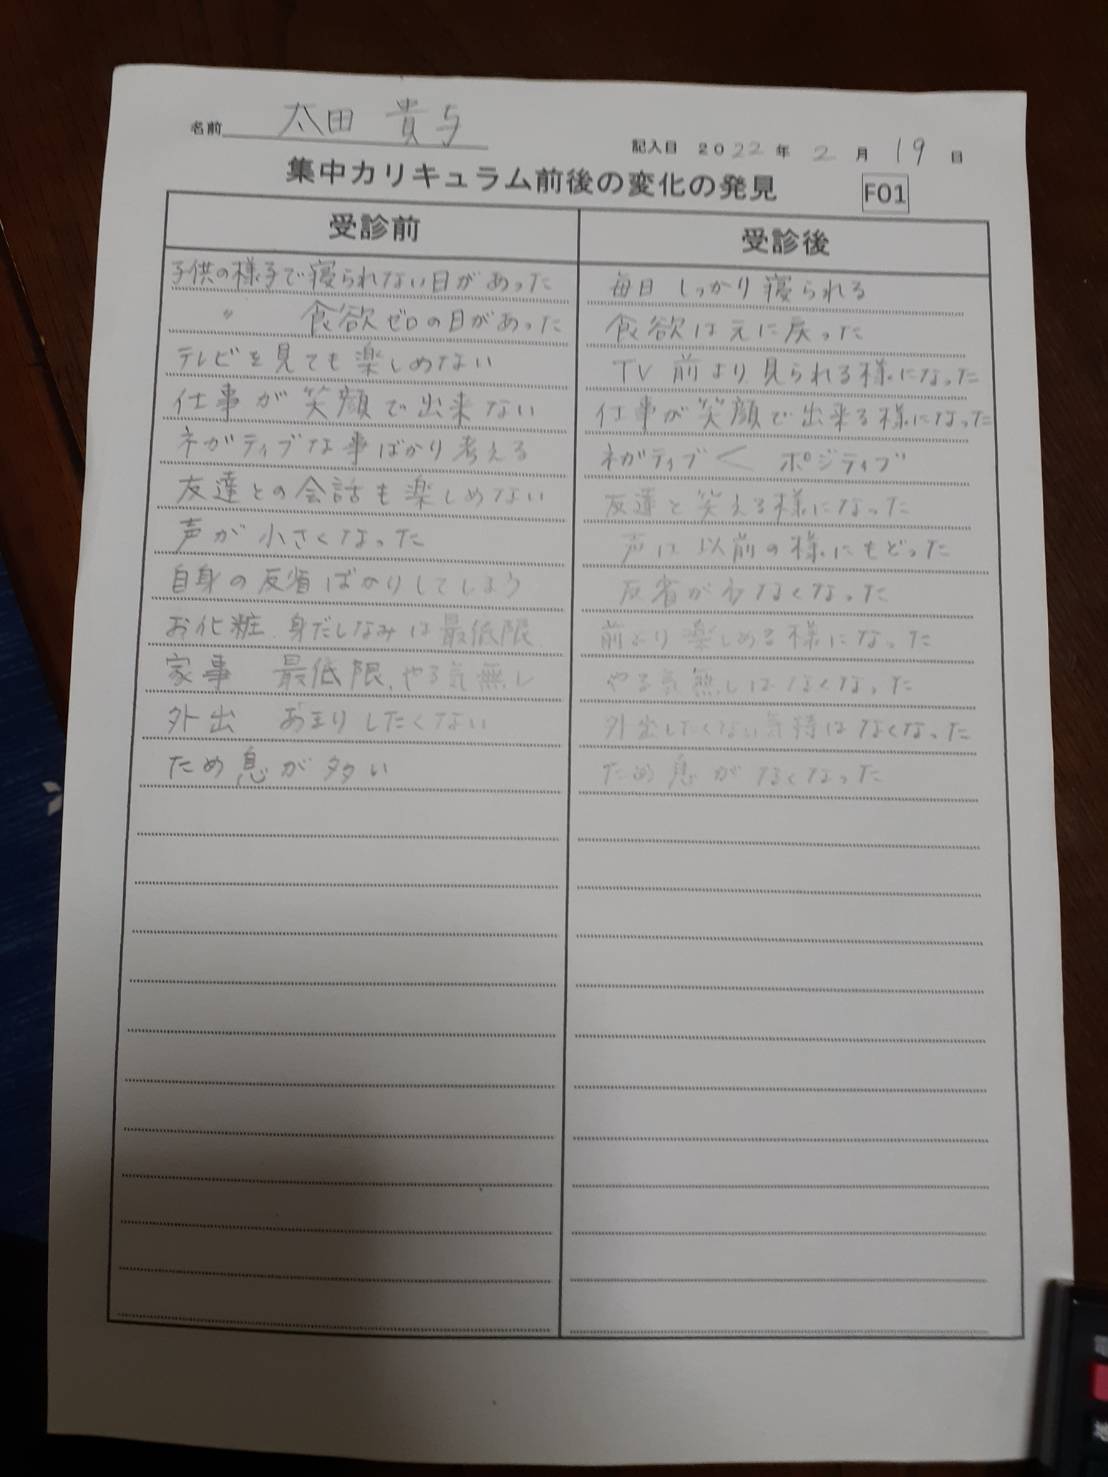 名前 太田 貴与
記入日 2022年 2月 19日
集中カリキュラム前後の変化の発見 F01
受診前
子供の様子で寝られない日があった
〃 食欲ゼロの日があった
テレビを見ても楽しめない
仕事が笑顔で出来ない
ネガティブな事ばかり考える
友達との会話も楽しめない
声が小さくなった
自身の反省ばかりしてしまう
お化粧、身だしなみは最低限
家事 最低限、やる気無し
外出 あまりしたくない
ため息が多い
受診後
毎日 しっかり寝られる
食欲は元に戻った
TV 前より見られる様になった
仕事が笑顔で出来る様になった
ネガティブ < ポジティブ
友達と笑える様になった
声は以前の様にもどった
反省が少なくなった
前より楽しめる様になった
やる気無しはなくなった
外出したくない気持はなくなった
ため息がなくなった